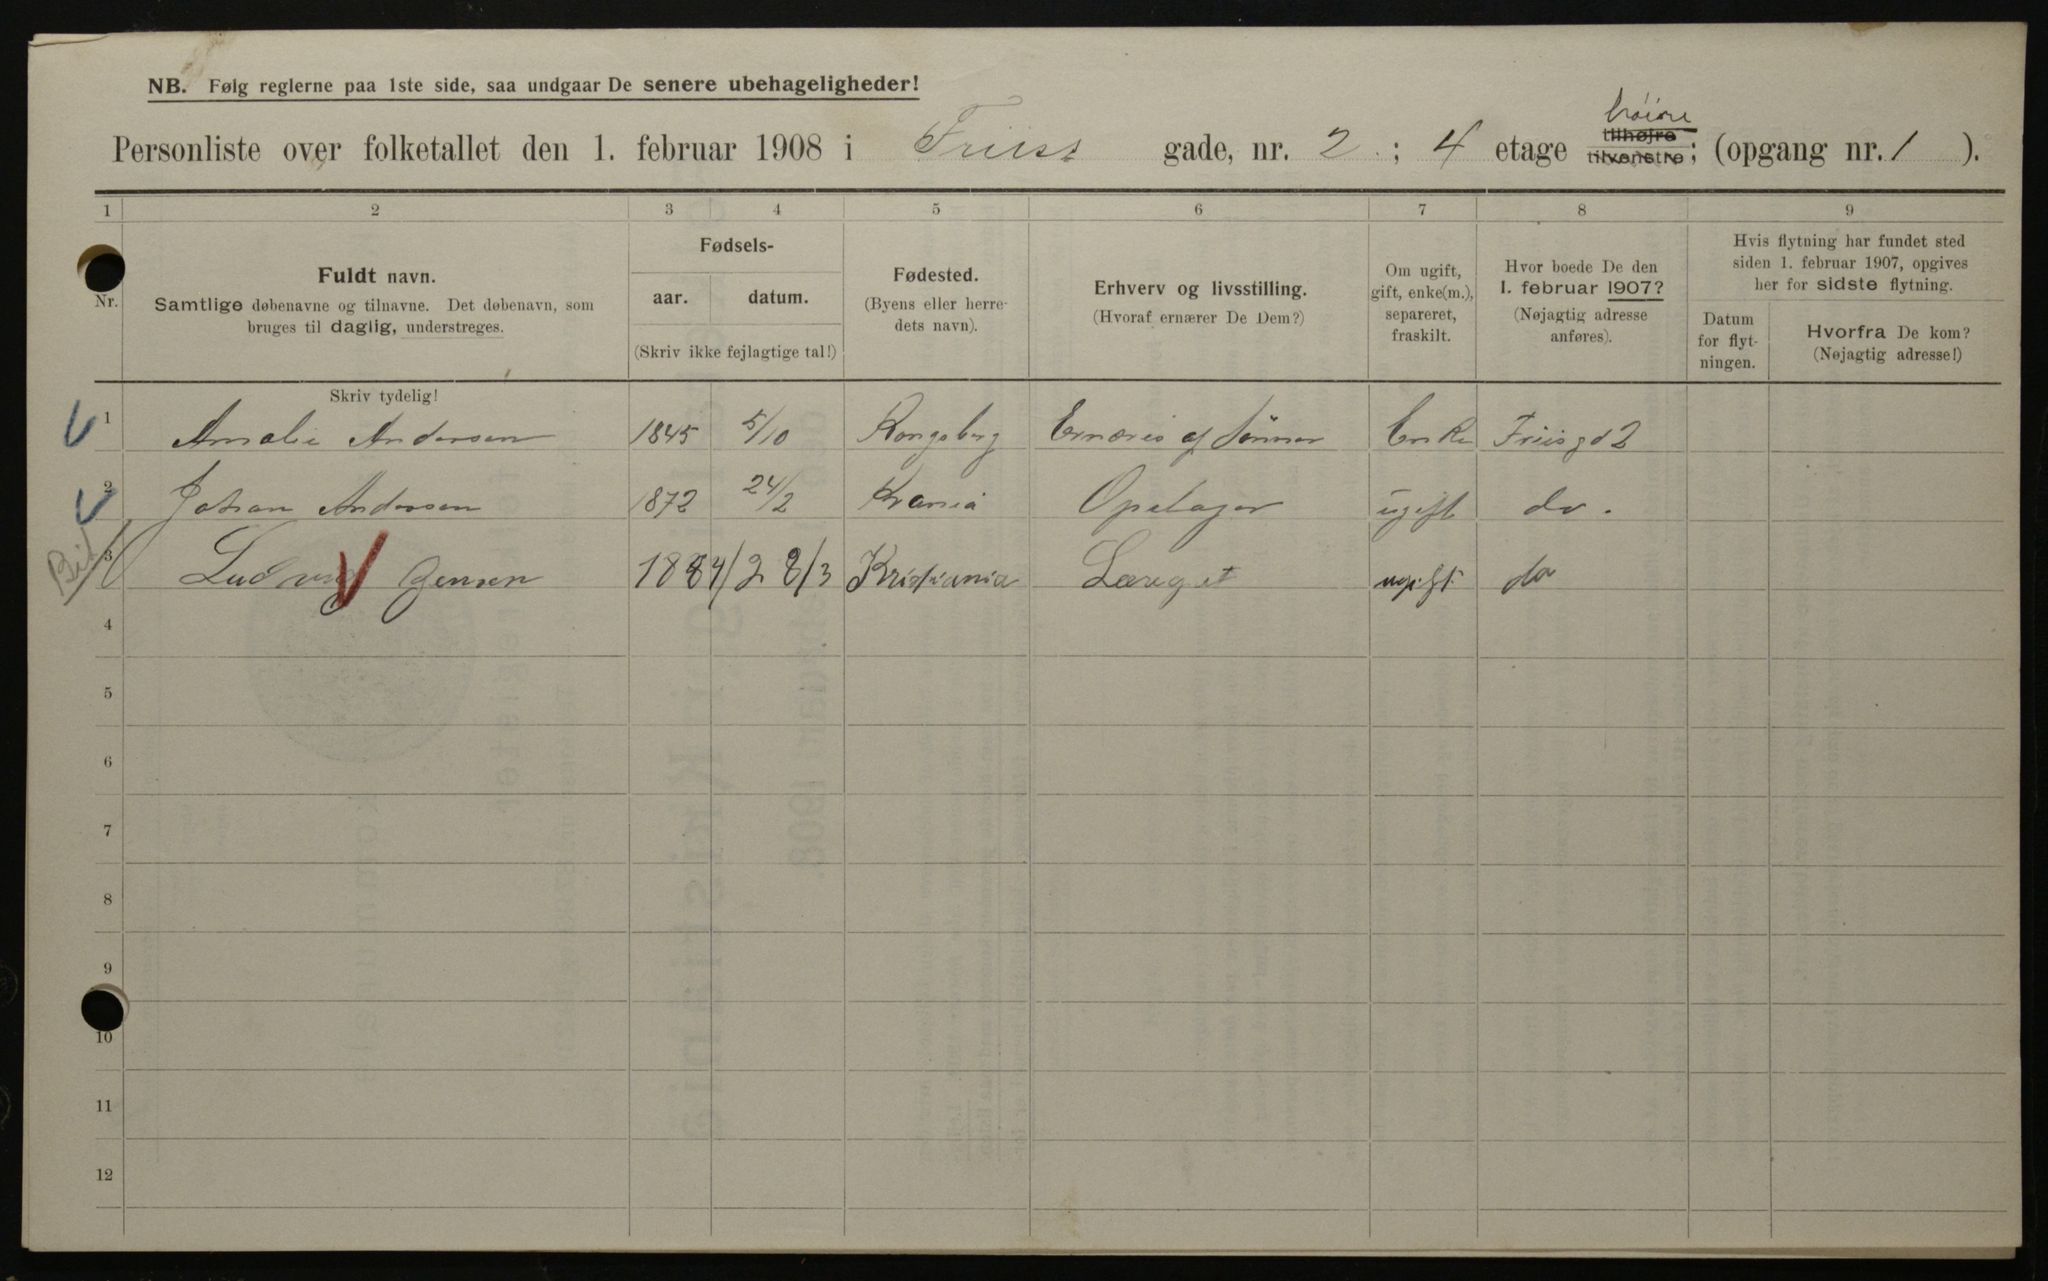 NB. Følg reglerne paa 1ste side, saa undgaar De senere ubehageligheder!
høire
Personliste over folketallet den 1. februar 1908 i Friisz gade, nr. 2 ; 4 etage tilhøjre tilvenstre; (opgang nr. 1 ).
1 2 3 4 5 6 7 8 9
Nr.
Fuldt navn.
Samtlige døbenavne og tilnavne. Det døbenavn, som
bruges til daglig, understreges.
Fødsels-
aar. datum.
(Skriv ikke fejlagtige tal!)
Fødested.
(Byens eller herre-
dets navn).
Erhverv og livsstilling.
(Hvoraf ernærer De Dem?)
Om ugift,
gift, enke(m.),
separeret,
fraskilt.
Hvor boede De den
1. februar 1907?
(Nøjagtig adresse
anføres).
Hvis flytning har fundet sted
siden 1. februar 1907, opgives
her for sidste flytning.
Datum
for flyt-
ningen.
Hvorfra De kom?
(Nøjagtig adresse!)
Skriv tydelig!
1 Amalie Andersen 1845 5/10 Kongsberg Ernæres af Sønner Enke Friisgd 2
2 Johan Andersen 1872 24/2 Krania Opslager ugift do.
3 Ludvig Jensen 1884 / 28/3 Kristiania ugift do
4
5
6
7
8
9
10
11
12